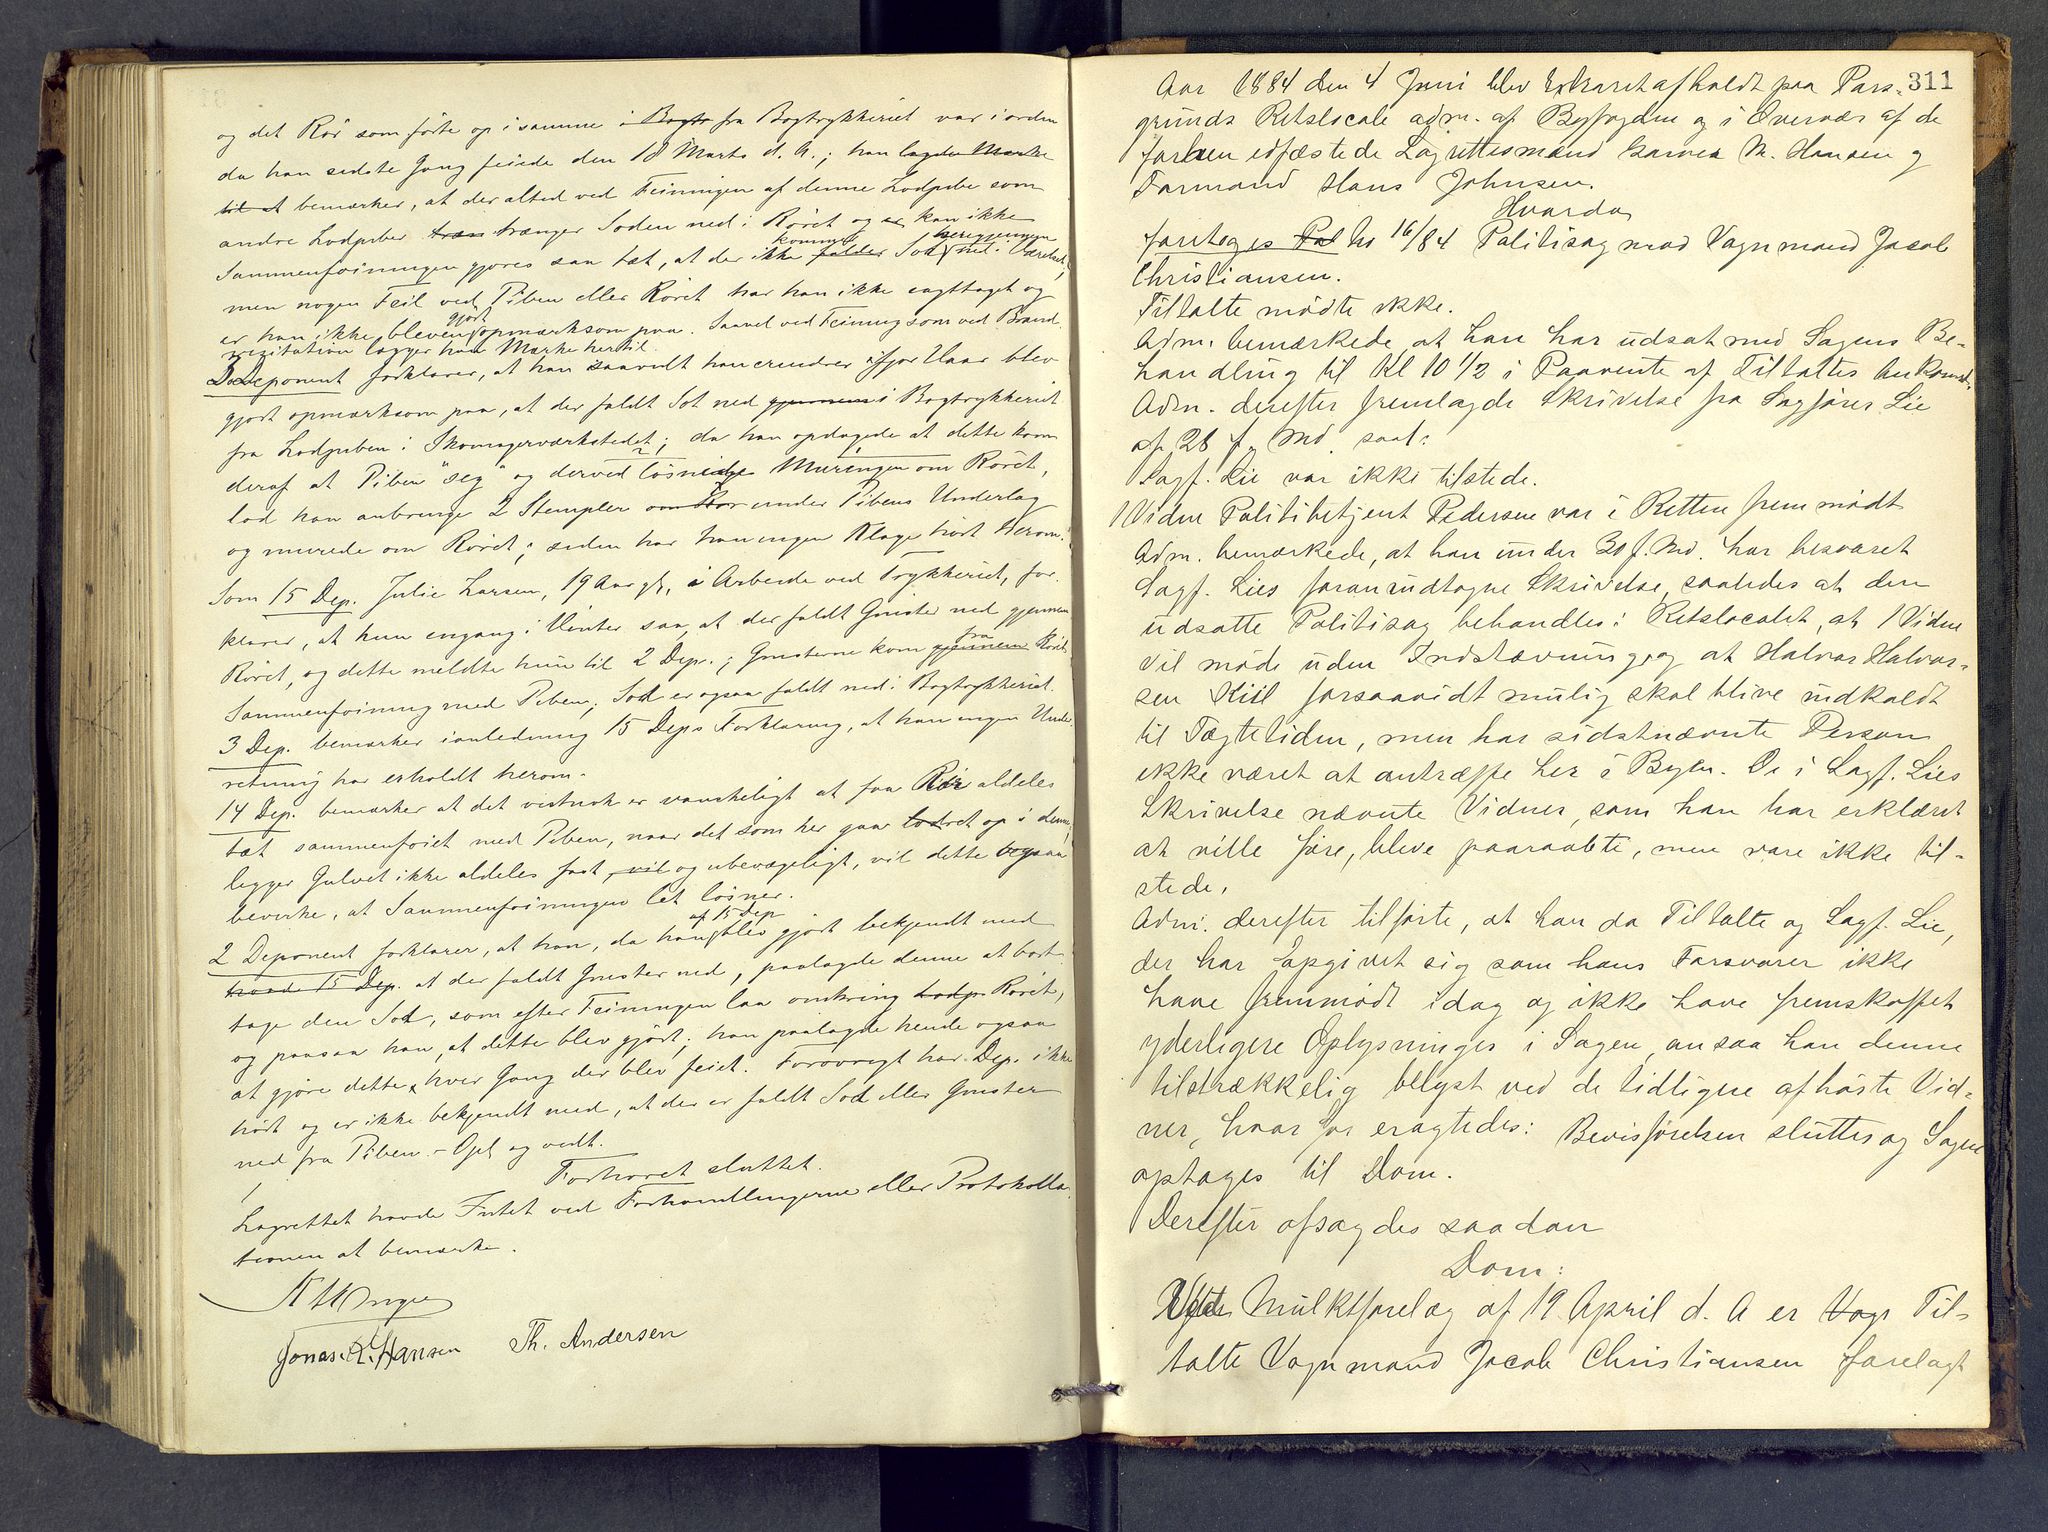 og det Rör som förte op i samme i Bogtr fra Bogtrykkeriet var i orden
da han sidste Gang feiede den 18 Marts d. A.; han lagde Mærke
til at bemærker, at der altid ved Feiningen af denne Lodpibe som
andre Lodpiber træn trænger Soden ned i Röret og er kan ikke
Sammenföiningen gjöres saa tæt, at der ikke falder kommer Sod ned i Værelset,
men nogen Feil ved Piben eller Röret har han ikke iagttaget og
er han ikke bleven gjort opmærksom paa. Saavel ved Feining som ved Brand
visitation lægger han Mærke hertil.
2 Deponent forklarer, at han saavidt han erindrer ifjor Vaar blev
gjort opmærksom paa, at der faldt Sot ned gjennem i Bogtrykkeriet
fra Lodpiben i Skomagerværkstedet; da han opdagede at dette kom
deraf at Piben "seg" og derved lösnede Muringen om Röret,
lod han anbringe 2 Stempler om Rör under Pibens Underlag
og murede om Röret; siden har han ingen Klage hört herom.
Som 15 Dep. Julie Larsen, 19 Aar gl, i Arbeide ved Trykkeriet, for-
klarer, at hun engang i Vinter saa, at der faldt Gnister ned gjennem
Röret, og dette meldte hun til 2 Dep.; Gnisterne kom gjennem fra Rörets
Sammenföining med Piben; Sod er ogsaa faldt ned i Bogtrykkeriet.
3 Dep. bemærker i anledning 15 Deps Forklaring, at han ingen Under-
retning har erholdt herom.
14 Dep. bemærker at det vistnok er vanskeligt at faa Rör aldeles
tæt sammenföiet med Piben, naar det som her gaar lodret op i denne;
ligger Gulvet ikke aldeles fast, vil og ubevægeligt, vil dette ogsaa
bevirke, at Sammenföiningen let lösner.
2 Deponent forklarer, at han, da han af 15 Dep blev gjort bekjendt med
hvad 15 Dep. at der faldt Gnister ned, paalagde denne at bort-
tage den Sod, som efter Feiningen laa omkring Lodp. Röret,
og paasaa han, at dette blev gjört; han paalagde hende ogsaa
at gjöre dette, hver Gang der blev feiet. Forövrigt har Dep. ikke
hört og er ikke bekjendt med, at der er faldt Sod eller Gnister
ned fra Piben. - Opl og vedt.
Forhöret sluttet.
Lagrettet havde Intet ved Forhandlingerne eller Protokolla-
tionen at bemærke.
Jonas. R. Hansen Th. Andersen
311
Aar 1884 den 4 Juni blev Extraret afholdt paa Pors-
grunds Retslocale adm. af Byfogden og i Overvær af de
forhen edfæstede Lagrettesmænd Garver M. Hansen og
Formand Hans Johnsen.
Hvorda
foretoges Pol No 16/84 Politisag mod Vognmand Jacob
Christiansen.
Tiltalte mödte ikke.
Adm. bemærkede at han har udsat med Sagens Be-
handling til Kl 10 1/2 i Paavente af Tiltaltes Ankomst.
Adm. derefter fremlagde Skrivelse fra Sagförer Lie
af 28 f. Md saal:
Sagf. Lie var ikke tilstede.
1 Vidne Politibetjent Pedersen var i Retten fremmödt
Adm. bemærkede, at han under 30 f. Md. har besvaret
Sagf. Lies foranindtagne Skrivelse, saaledes at den
udsatte Politisag behandles i Retslocalet, at 1 Vidne
vil möde uden Indstævning og at Halvor Halvor-
sen Kiil forsaavidt mulig skal blive indkaldt
til Tægtetiden, men har sidstnævnte Person
ikke været at antræffe her i Byen. De i Sagf. Lies
Skrivelse nævnte Vidner, som han har erklæret
at ville före, bleve paaraabte, men vare ikke til-
stede.
Adm. derefter tilförte, at han da Tiltalte og Sagf. Lie,
der har opgivet sig som hans Forsvarer ikke
have fremmödt idag og ikke have fremskaffet
yderligere Oplysninger i Sagen, ansaa han denne
tilstrækkelig belyst ved de tidligere afhörte Vid-
ner, hvorfor eragtedes: Bevisförelsen sluttes og Sagen
optages til Dom.
Derefter afsagdes saadan
Dom:
Ved Mulktforelæg af 19. April d. A er Vogn Til-
talte Vognmand Jacob Christiansen forelagt